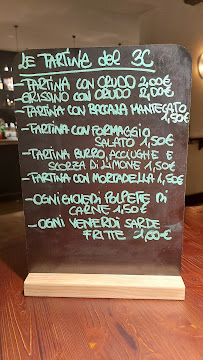 LE TARTINE DEL 3C
- TARTINA CON CRUDO 2,00€
GRISSINO CON CRUDO 2,00€
- TARTINA CON BACCALÀ MANTECATO
1,50€
- TARTINA CON FORMAGGIO
SALATO 1,50€
- TARTINA BURRO, ACCIUGHE E
SCORZA DI LIMONE 1,50€
- TARTINA CON MORTADELLA 1,50€
- OGNI GIOVEDÌ POLPETTE DI
CARNE 1,50€
- OGNI VENERDÌ SARDE
FRITTE 1,00€